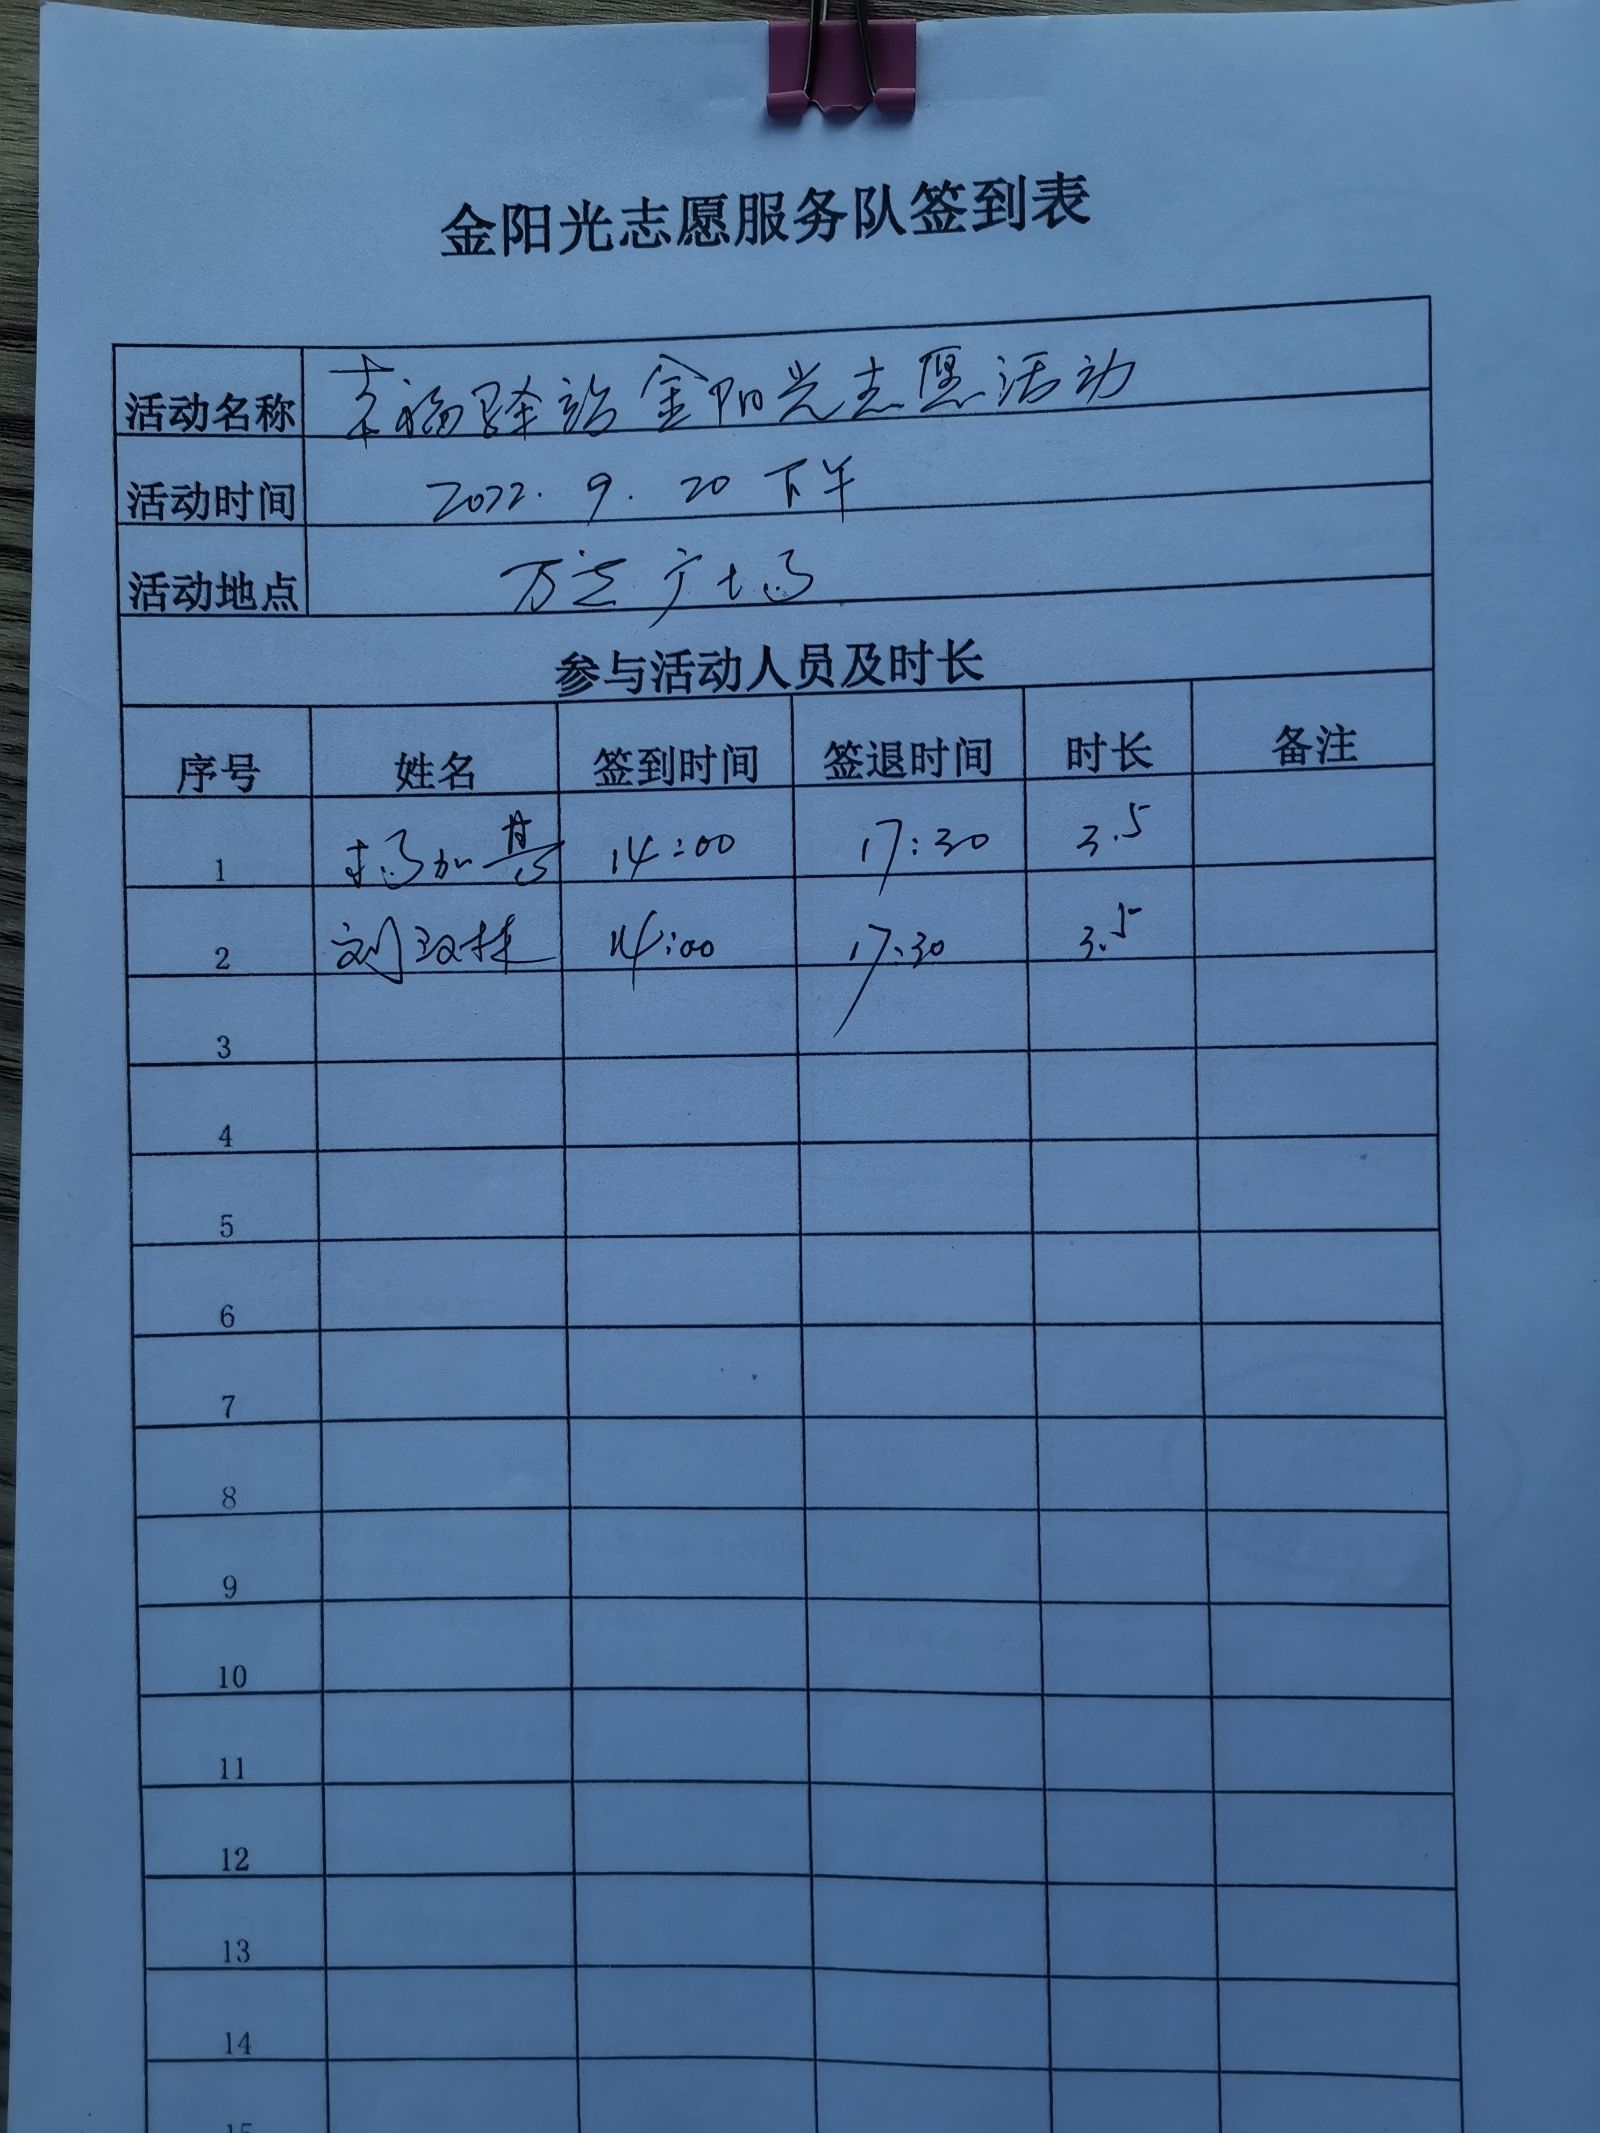 金阳光志愿服务队签到表
活动名称 幸福驿站金阳光志愿活动
活动时间 2022.9.20 下午
活动地点 万达广场
参与活动人员及时长
序号 姓名 签到时间 签退时间 时长 备注
1 杨加 14:00 17:30 3.5
2 刘 14:00 17:30 3.5
3
4
5
6
7
8
9
10
11
12
13
14
15